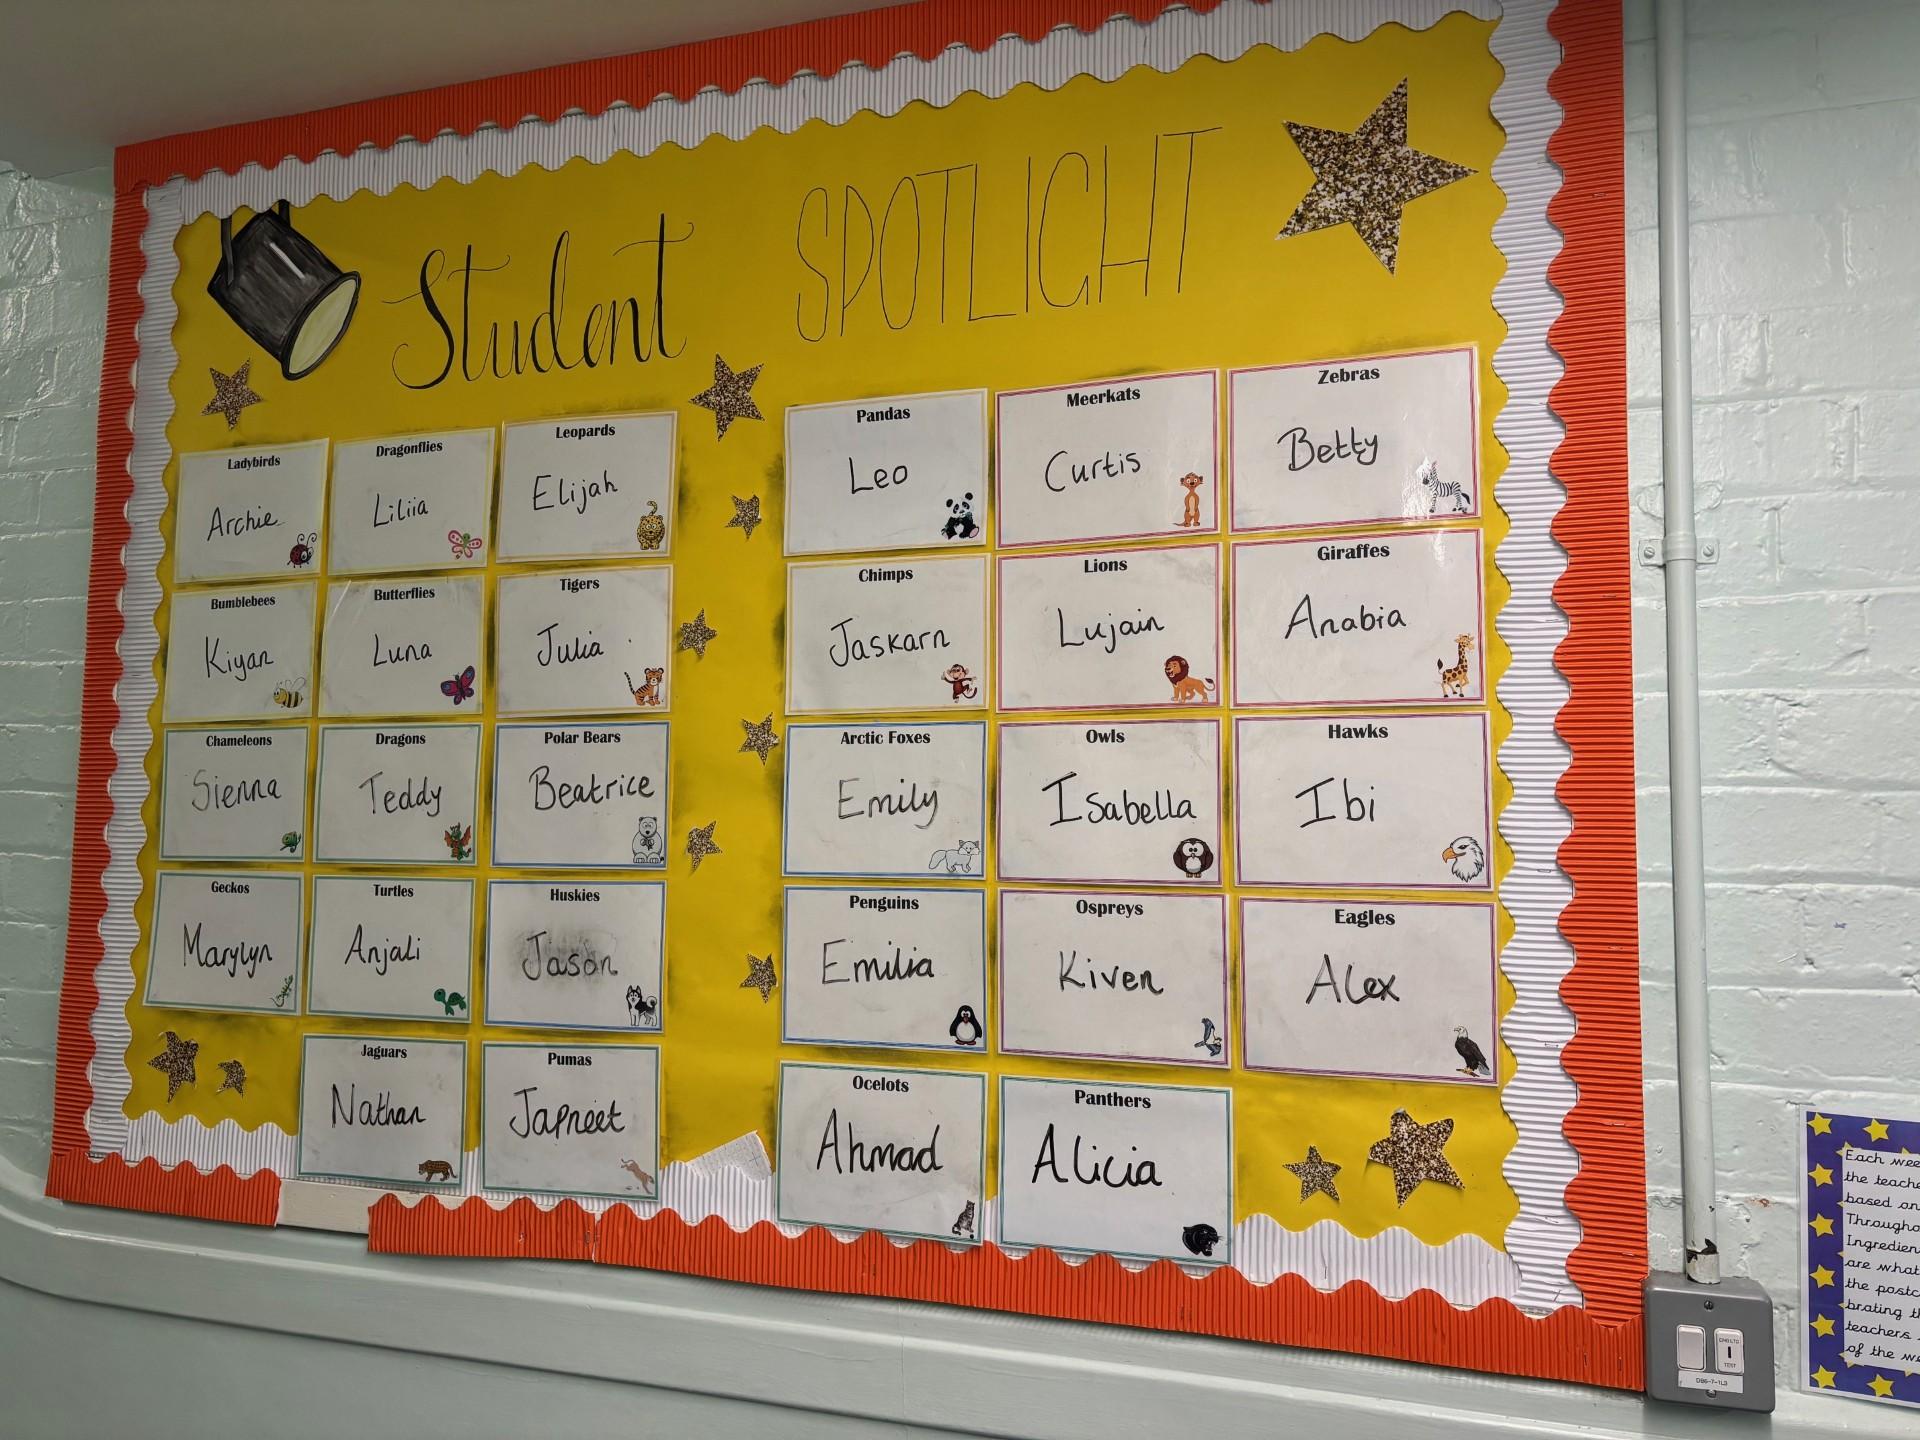 Student SPOTLIGHT
Ladybirds
Archie
Dragonflies
Liliia
Leopards
Elijah
Bumblebees
Kiyan
Butterflies
Luna
Tigers
Julia
Chameleons
Sienna
Dragons
Teddy
Polar Bears
Beatrice
Geckos
Marylyn
Turtles
Anjali
Huskies
Jason
Jaguars
Nathan
Pumas
Japneet
Pandas
Leo
Meerkats
Curtis
Zebras
Betty
Chimps
Jaskarn
Lions
Lujain
Giraffes
Anabia
Arctic Foxes
Emily
Owls
Isabella
Hawks
Ibi
Penguins
Emilia
Ospreys
Kiven
Eagles
Alex
Ocelots
Ahmad
Panthers
Alicia
Each wee
the teache
based on
Througho
Ingredien
are what
the postc
brating th
teachers
of the we
TEST
DB6-7-1L3